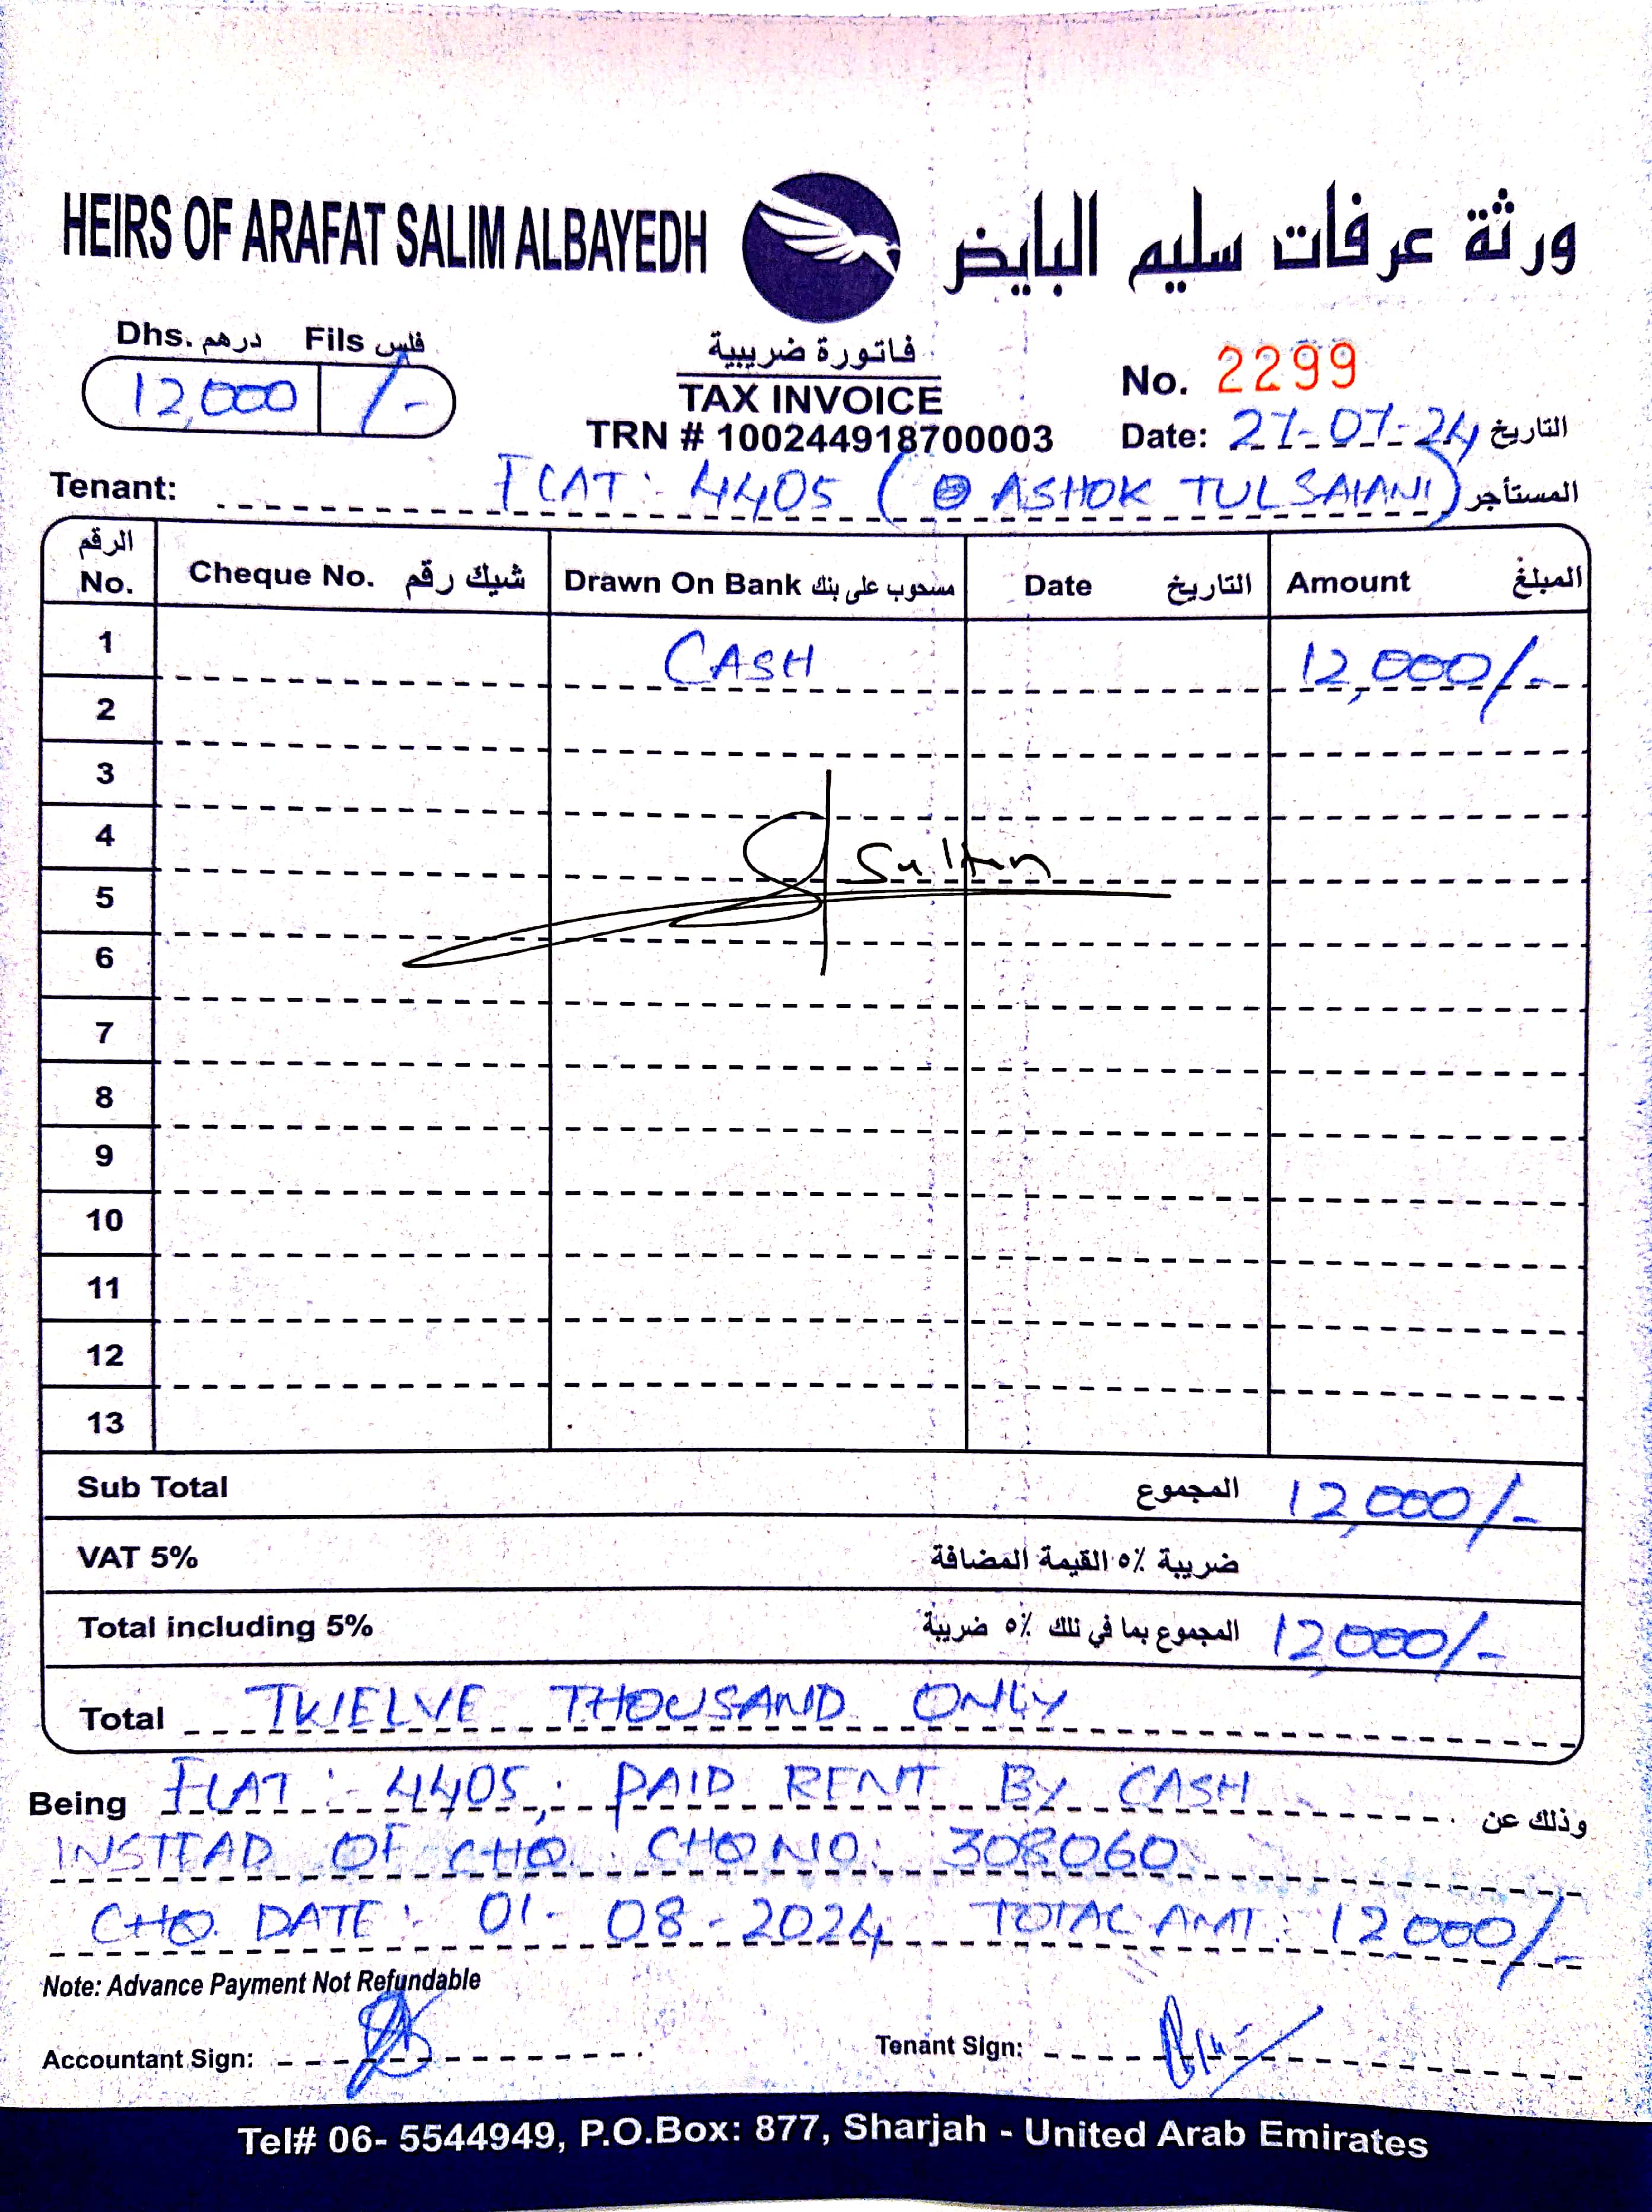 HEIRS OF ARAFAT SALIM ALBAYEDH ورثة عرفات سليم البايض
Dhs. درهم Fils فلس
12,000 /-
فاتورة ضريبية
TAX INVOICE
TRN # 100244918700003
No. 2299
Date: 27-07-24 التاريخ
Tenant: FLAT: 4405 ( ASHOK TULSAIANI) المستأجر
الرقم No. Cheque No. شيك رقم Drawn On Bank مسحوب على بنك Date التاريخ Amount المبلغ
1 CASH 12,000/-
2
3
4 Sultan
5
6
7
8
9
10
11
12
13
Sub Total المجموع 12,000/-
VAT 5% ضريبة ٥٪ القيمة المضافة
Total including 5% المجموع بما في ذلك ٥٪ ضريبة 12,000/-
Total TWELVE THOUSAND ONLY
Being FLAT: 4405, PAID RENT BY CASH وذلك عن
INSTEAD OF CHQ. CHQ NO: 308060
CHQ. DATE: 01-08-2024 TOTAL AMT: 12000/-
Note: Advance Payment Not Refundable
Accountant Sign: Tenant Sign:
Tel# 06- 5544949, P.O.Box: 877, Sharjah - United Arab Emirates